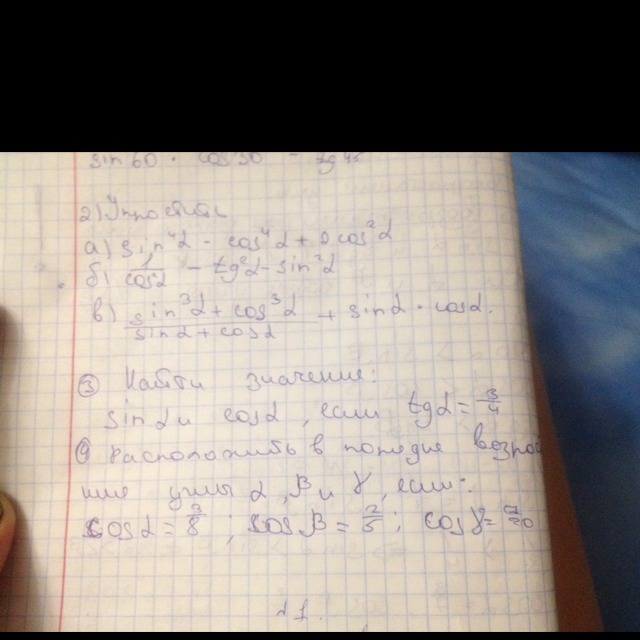 sin 60 · cos 30 - tg 45
2) Упростить
а) sin⁴α - cos⁴α + 2cos²α
б) 1/cos²α - tg²α - sin²α
в) (sin³α + cos³α)/(sinα + cosα) + sinα · cosα.
③ Найти значение:
sinα и cosα, если tgα = 3/4
④ Расположить в порядке возрас
ние углы α, β и γ, если:
cosα = /8 ; cosβ = 2/5 ; cosγ = /20